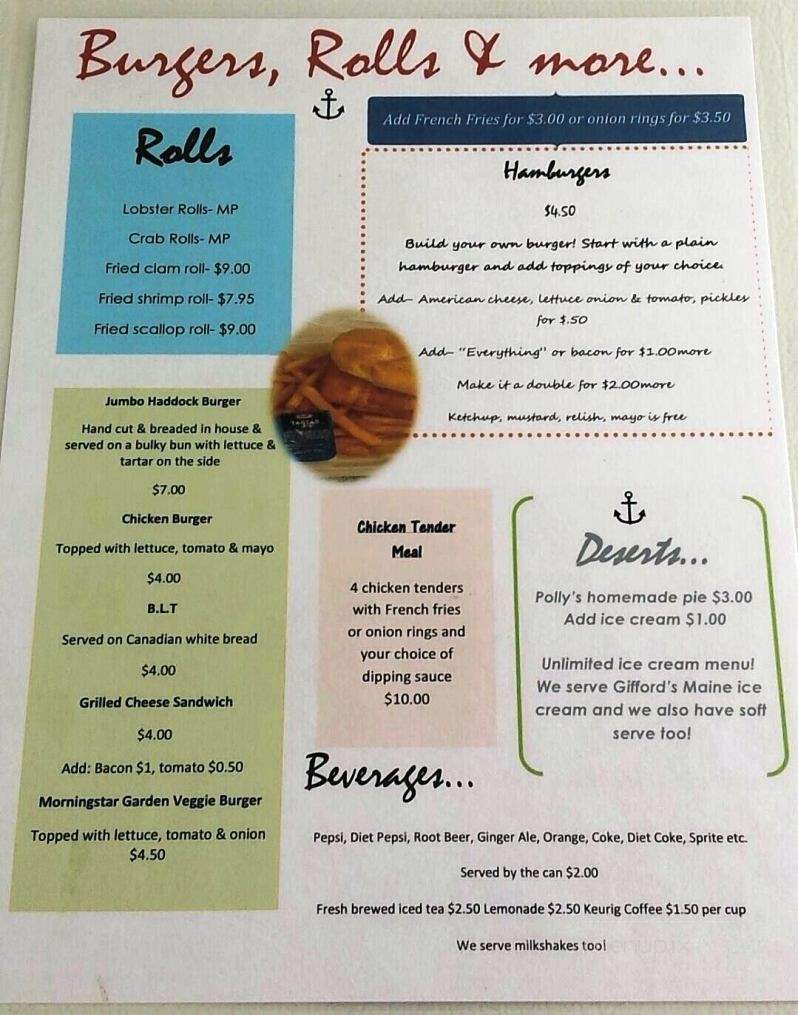 Burgers, Rolls & more...
Add French Fries for $3.00 or onion rings for $3.50
Rolls
Lobster Rolls- MP
Crab Rolls- MP
Fried clam roll- $9.00
Fried shrimp roll- $7.95
Fried scallop roll- $9.00
Hamburgers
$4.50
Build your own burger! Start with a plain
hamburger and add toppings of your choice.
Add- American cheese, lettuce onion & tomato, pickles
for $.50
Add- "Everything" or bacon for $1.00more
Make it a double for $2.00more
Ketchup, mustard, relish, mayo is free
TARTAR
Jumbo Haddock Burger
Hand cut & breaded in house &
served on a bulky bun with lettuce &
tartar on the side
$7.00
Chicken Burger
Topped with lettuce, tomato & mayo
$4.00
B.L.T
Served on Canadian white bread
$4.00
Grilled Cheese Sandwich
$4.00
Add: Bacon $1, tomato $0.50
Morningstar Garden Veggie Burger
Topped with lettuce, tomato & onion
$4.50
Chicken Tender
Meal
4 chicken tenders
with French fries
or onion rings and
your choice of
dipping sauce
$10.00
Deserts...
Polly's homemade pie $3.00
Add ice cream $1.00
Unlimited ice cream menu!
We serve Gifford's Maine ice
cream and we also have soft
serve too!
Beverages...
Pepsi, Diet Pepsi, Root Beer, Ginger Ale, Orange, Coke, Diet Coke, Sprite etc.
Served by the can $2.00
Fresh brewed iced tea $2.50 Lemonade $2.50 Keurig Coffee $1.50 per cup
We serve milkshakes too!